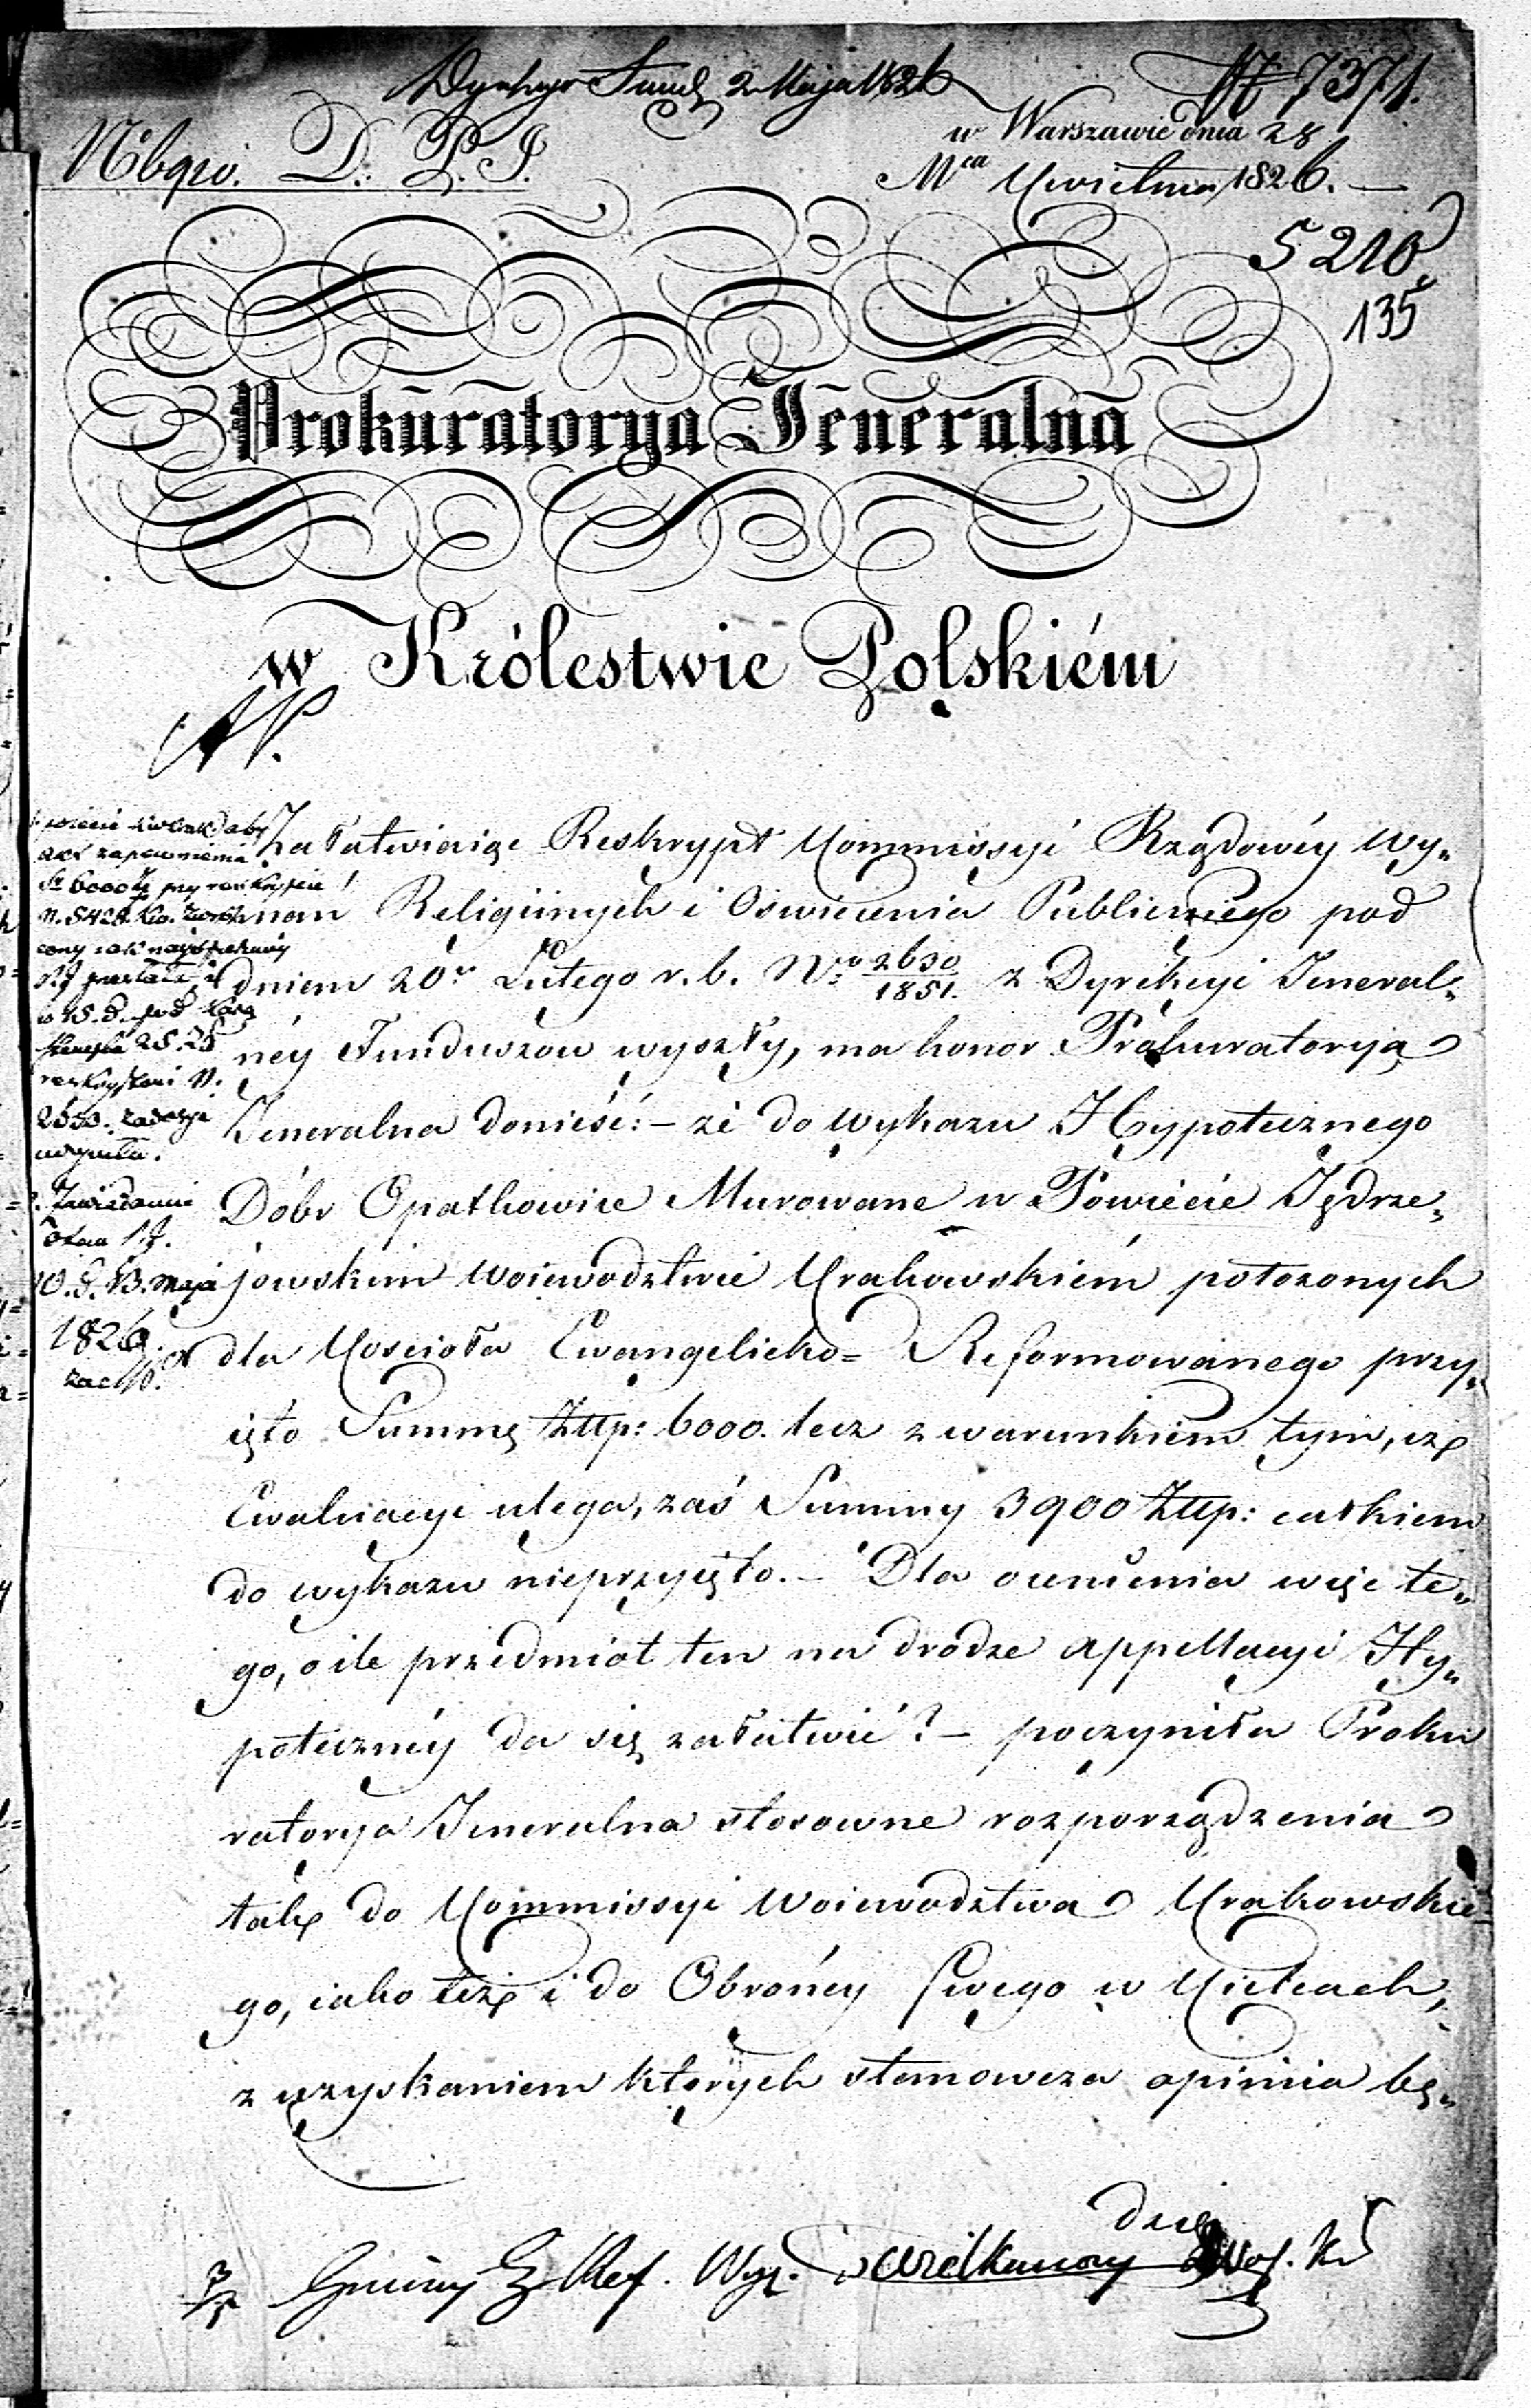 2 Maja 1826
№ 7371.
w Warszawie dnia 28
D. P. J.
Mca Kwietnia 1826. —
5210
135
Prokuratorya Jeneralna
w Królestwie Polskiém
Załatwiaiąc Reskrypt Kommissyi Rządowéy Wy„
znań Religiinych i Oświecenia Publicznego pod
dniem 20. Lutego r. b. Nro 2630/1851. z Dyrekcyi Jeneral„
néy Funduszów wyszły, ma honor Prokuratorya
Jeneralna donieść: – że do wykazu Hypotecznego
Dóbr Opatkowice Murowane w Powiecie Jędrze„
jowskim Woiewodztwie Krakowskiém położonych
dla Kościoła Ewangelicko= Reformowanego przy„
ięto Summę Złłp: 6000. lecz z warunkiem tym, iż
Ewaluacyi ulega, zaś Summy 3900 Złłp: całkiem
do wykazu nieprzyięto. – Dla ocenienia więc te„
go, o ile przedmiot ten na drodze appellacyi Hy„
poteczney da się załatwić? – poczyniła Proku
ratorya Jeneralna stosowne rozporządzenia
tak do Kommissyi Woiewodztwa Krakowskie„
go, iako też i do Obrońcy swego w Kielcach,
z uzyskaniem których stanowcza opinia bę„
dzie
aby
akt zapewnienia
6000
10. d. 13. Maja
1826.
Gminy Ref. Wyz.